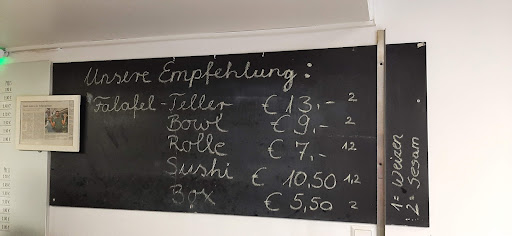 Unsere Empfehlung:
Falafel-Teller € 13,- 2
Bowl € 9,- 2
Rolle € 7,- 1,2
Sushi € 10,50 1,2
Box € 5,50 2
1= Weizen
2= Sesam